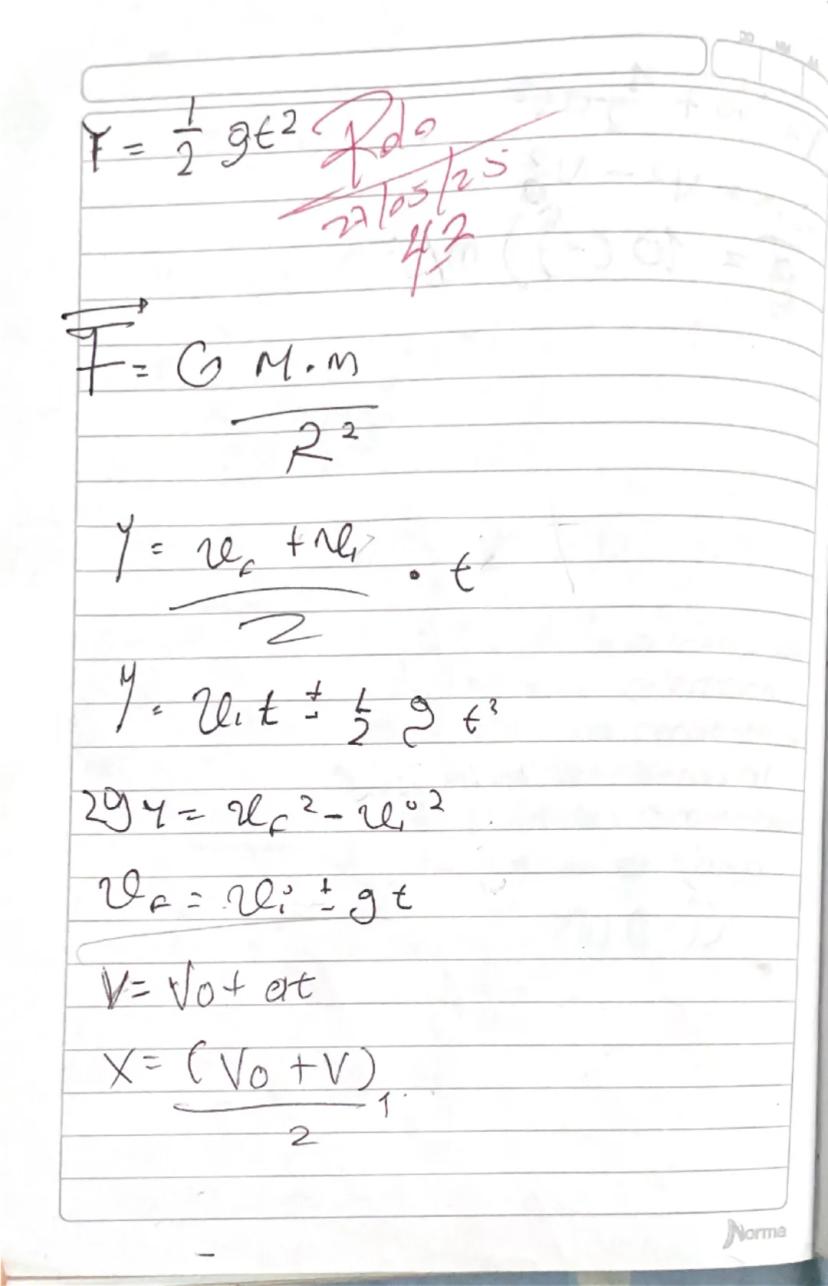 Y = 1/2 gt² Rdo
27/05/25
4.2
F = G M.m / R²
Y = vf + vi / 2 . t
Y = vi t ± 1/2 g t²
2gY = vf² - vi²
vf = vi ± gt
V = Vo + at
X = (Vo + V) / 2 t
Norma